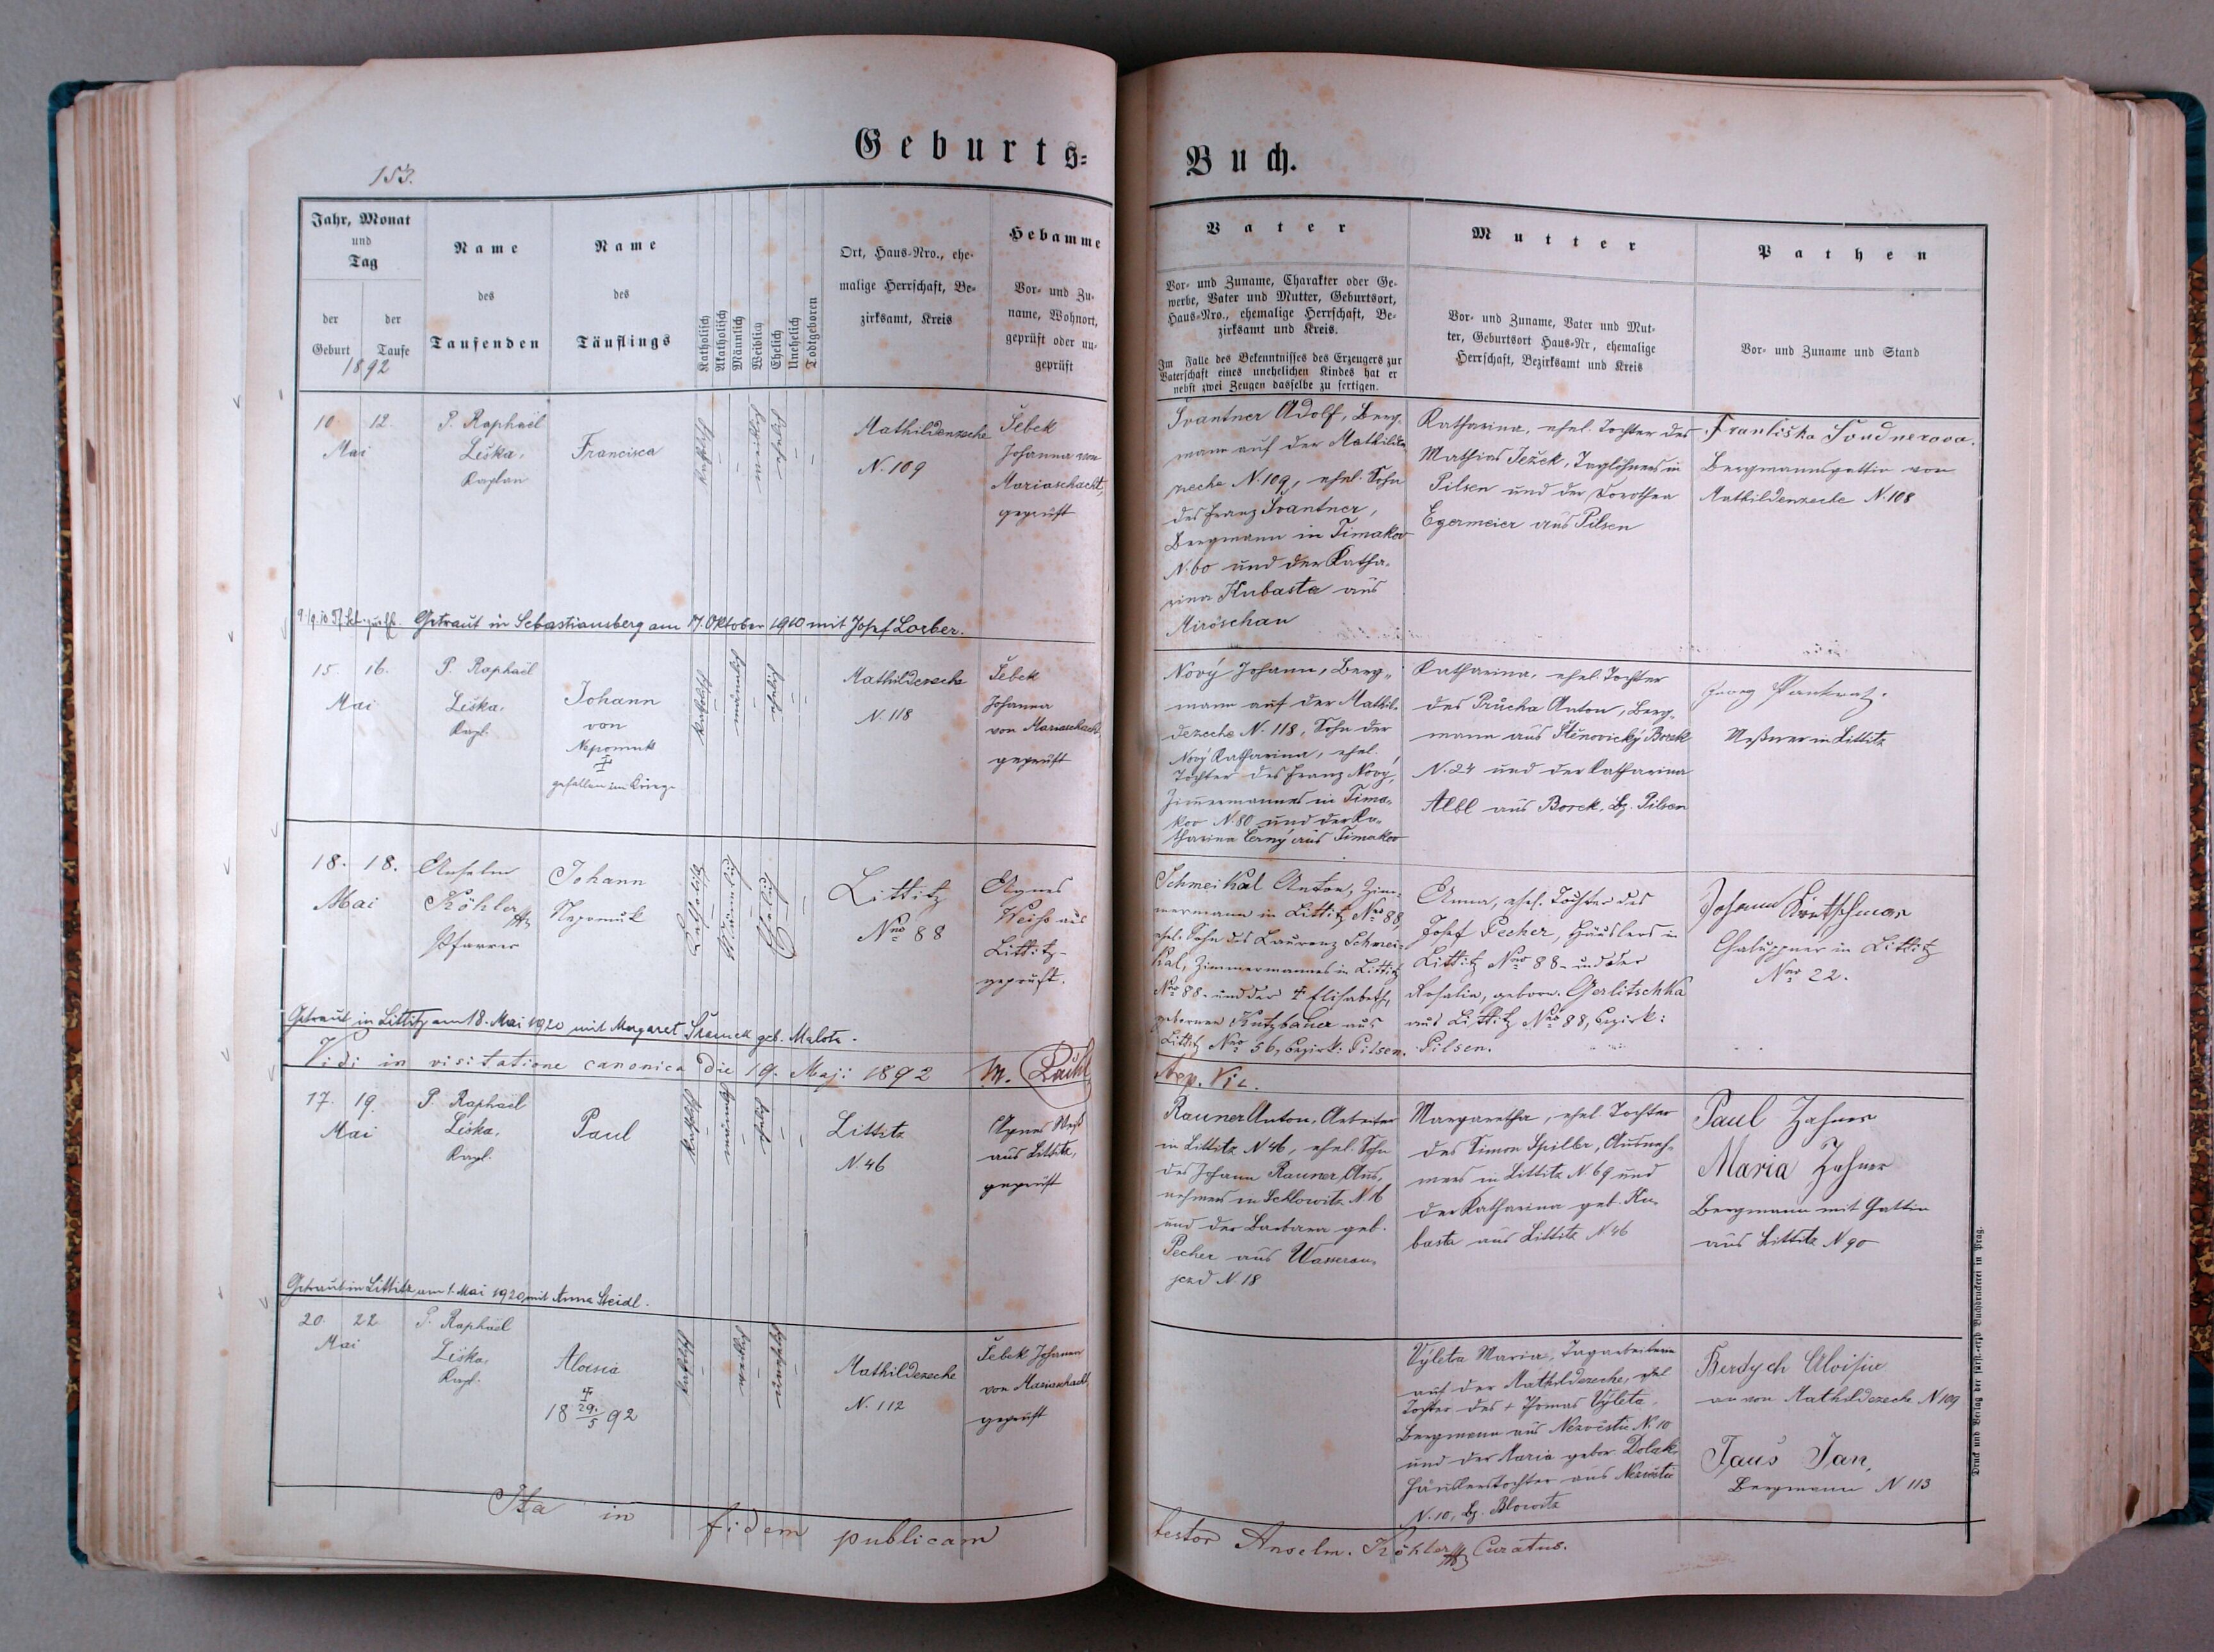 153.
Geburts=
Jahr, Monat
und
Tag
der
Geburt
der
Taufe
1892
Name
des
Taufenden
Name
des
Täuflings
Katholisch
Akatholisch
Männlich
Weiblich
Ehelich
Unehelich
Todtgeboren
Ort, Haus-Nro., ehe-
malige Herrschaft, Be-
zirksamt, Kreis
Hebamme
Vor- und Zu-
name, Wohnort,
geprüft oder un-
geprüft
10. 12.
Mai
P. Raphael
Liška,
Kaplan
Francisca
Mathildenzeche
N. 109
Šebek
Johanna von
Mariaschacht,
geprüft
Getraut in Sebastiansberg am 17. Oktober 1910 mit Josef Lorber.
15. 16.
Mai
P. Raphaël
Liška,
Kapl.
Johann
von
Nepomuk
gefallen im Kriege
Mathildezeche
N. 118
Šebek
Johanna
von Mariaschacht,
geprüft
18. 18.
Mai
Anselm
Köhler
Pfarrer
Johann
Nepomuk
Littitz
Nro 88
Agnes
Weiß aus
Littitz-
geprüft.
Getraut in Littitz am 18. Mai 1920 mit Margaret Šramek geb. Malota.
Vidi in visitatione canonica die 19. Maji 1892
17. 19.
Mai
P. Raphaël
Liška,
Kapl.
Paul
Littitz
N. 46
Agnes Weiß
aus Littitz,
geprüft
Getraut in Littitz am 1. Mai 1920 mit Anna Steidl.
20. 22.
Mai
P. Raphaël
Liška,
Kapl.
Aloisia
†
18 29./5 92
Mathildezeche
N. 112
Šebek Johanna
von Mariaschacht
geprüft
Ita in fidem publicam
Buch.
Vater
Vor- und Zuname, Charakter oder Ge-
werbe, Vater und Mutter, Geburtsort,
Haus-Nro., ehemalige Herrschaft, Be-
zirksamt und Kreis.
Im Falle des Bekenntnisses des Erzeugers zur
Vaterschaft eines unehelichen Kindes hat er
nebst zwei Zeugen dasselbe zu fertigen.
Mutter
Vor- und Zuname, Vater und Mut-
ter, Geburtsort Haus-Nr, ehemalige
Herrschaft, Bezirksamt und Kreis
Pathen
Vor- und Zuname und Stand
Svantner Adolf, Berg-
mann auf der Mathilden
zeche N. 109, ehel. Sohn
des Franz Svantner,
Bergmann in Timakov
N. 60 und der Katha-
rina Kubasta aus
Miröschau
Katharina, ehel. Tochter des
Mathias Ježek, Taglöhners in
Pilsen und der Dorothea
Egermeier aus Pilsen
Bergmannsgattin von
Mathildenzeche N. 108
Nový Johann, Berg-
mann auf der Mathil-
dezeche N. 118, Sohn der
Nový Katharina, ehel.
Tochter des Franz Nový,
Zimmermannes in Tima-
kov N. 80 und der Ka-
tharina Černý aus Timakov
Katharina, ehel. Tochter
des Průcha Anton, Berg-
mann aus Štěnovický Borek
N. 24 und der Katharina
Albl aus Borek, Bz. Pilsen
Georg Pankratz,
Meßner in Littitz
Schmeikal Anton, Zim-
mermann in Littitz Nro 88,
ehel. Sohn des Laurenz Schmei-
kal, Zimmermannes in Littitz
Nro 88 und der † Elisabeth,
gebornen Kutzbauer aus
Littitz Nro 56, Bezirk: Pilsen.
Anna, ehel. Tochter des
Josef Pecher, Häuslers in
Littitz Nro 88 und der
Rosalia, geborn. Gerlitschka
aus Littitz Nro 88, Bezirk:
Pilsen.
Johann Kretschmar
Chaluppner in Littitz
Nro 22.
Rauner Anton, Arbeiter
in Littitz N 46, ehel. Sohn
des Johann Rauner, Aus-
nehmers in Schlowitz N. 16
und der Barbara geb.
Pecher aus Wasserau-
jezd N 18
Margaretha, ehel. Tochter
des Simon Spiller, Ausneh-
mers in Littitz N. 69 und
der Katharina geb. Ku-
basta aus Littitz N 46
Paul Zahner
Maria Zahner
Bergmann mit Gattin
aus Littitz N 90
Výleta Maria, Tagarbeiterin
auf der Mathildezeche, ehel
Tochter des † Thomas Výleta,
Bergmann aus Nezvěstic N. 10
und der Maria gebor Dolak,
Häuslerstochter aus Nezvěstic
N. 10, Bz. Blowitz
Berdych Aloisie
von Mathildezeche N 109
Taus Jan,
Bergmann N 113
testor Anselm. Köhler Curatus.
Druck und Verlag der fürst-erzb Buchdruckerei in Prag.